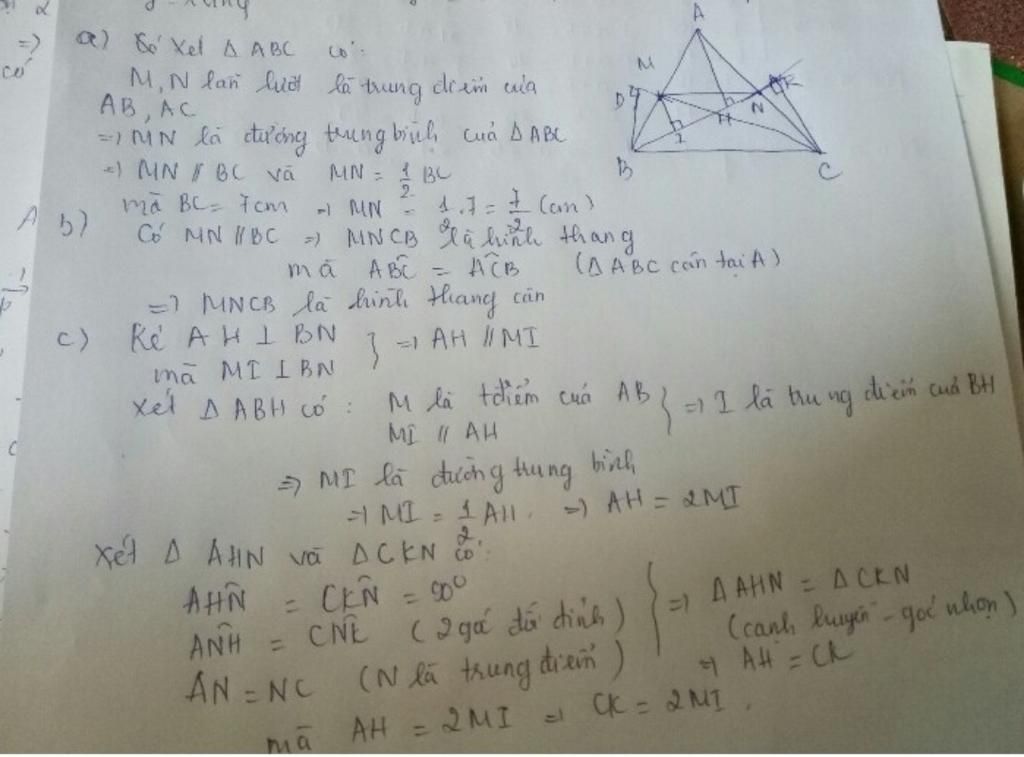 a) Có xét Δ ABC có:
M, N lần lượt là trung điểm của
AB, AC
=> MN là đường trung bình của ΔABC
=> MN // BC và MN = 1/2 BC
mà BC = 7cm => MN = 1/2 . 7 = 7/2 (cm)
b) Có MN // BC => MNCB là hình thang
mà ABC̑ = AĈB (ΔABC cân tại A)
=> MNCB là hình thang cân
c) Kẻ AH ⊥ BN
mà MI ⊥ BN } => AH // MI
Xét Δ ABH có: M là tđiểm của AB
MI // AH } => I là trung điểm của BH
=> MI là đường trung bình
=> MI = 1/2 AH. => AH = 2MI
Xét Δ AHN và ΔCKN có:
AHN̂ = CKN̂ = 90°
AN̂H = CN̂K (2 góc đối đỉnh)
AN = NC (N là trung điểm) } => ΔAHN = ΔCKN
(cạnh huyền - góc nhọn)
=> AH = CK
mà AH = 2MI => CK = 2MI.
A
M
D
N
K
H
I
B
C